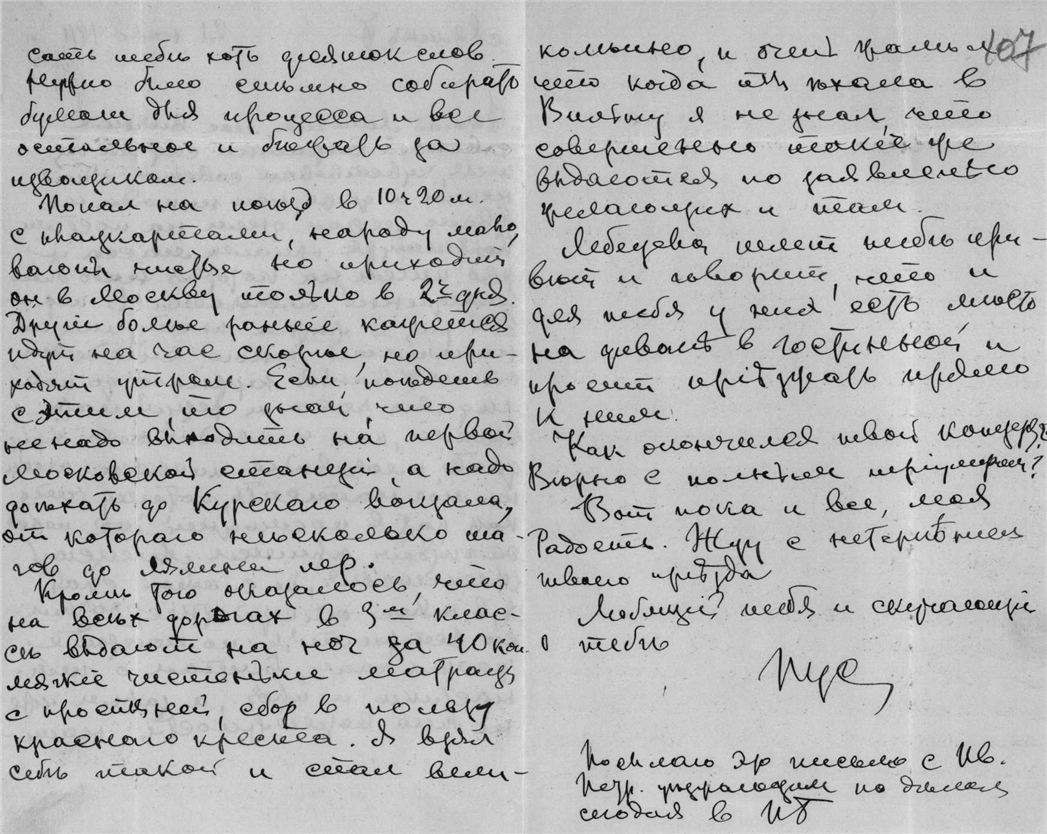 сать тебѣ хоть десяток слов.
Нужно было спешно собирать
бумаги для процесса и все
остальное и бѣжать за
извощиком.
Попал на поѣзд в 10 ч 20 м.
с плацкартами, народу мало,
вагон но приходит
он в Москву только в 2 ч дня.
Другие более ранние кажется
идут на час скорѣе но при-
ходят утром. Если поѣдешь
с этим то знай что
не надо выходить на первой
Московской станции а надо
доѣхать до Курскаго вокзала,
от котораго нѣсколько ша-
гов до Лялина пер.
Кромѣ того оказалось, что
на всѣх дорогах в 3м клас-
сѣ выдают на ноч за 40 коп.
мягкие чистенькие матрацы
с простыней, сбор в пользу
краснаго креста. Я взял
себѣ такой и спал вели-
407
колѣпно, и очень жалѣл
что когда ты ѣхала в
Вятку я не знал, что
совершенно такие же
выдаются по заявлению
желающих и там.
Лебедева шлет тебѣ при-
вѣт и говорит, что и
для тебя у нея есть мѣсто
на диванѣ в гостинной и
просит приѣзжать прямо
к ним.
Как окончился твой концерт?
Вѣрно с полным триумфом?
Вот пока и все, моя
Радость. Жду с нетерпѣнием
твоего приѣзда
Любящий тебя и скучающий
о тебѣ
Посылаю это письмо с Ив.
Петр. по дѣлам
сегодня в ПБ